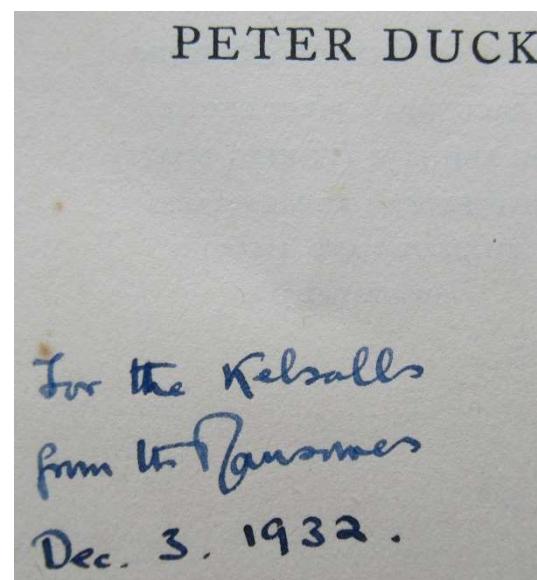 PETER DUCK
For the Kelsalls
from the Ransomes
Dec. 3. 1932.